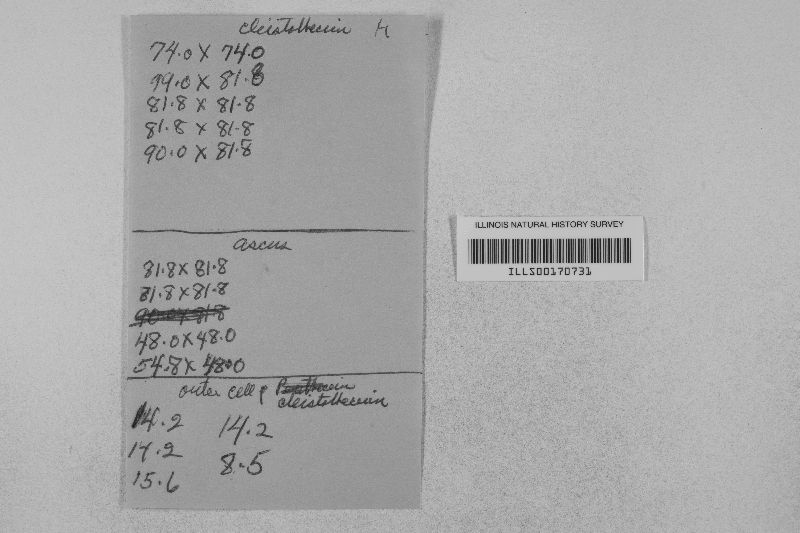 cleistothecium μ
74.0 X 74.0
99.0 X 81.8
81.8 x 81.8
81.8 x 81.8
90.0 X 81.8
ascus
81.8 x 81.8
81.8 x 81.8
90.0 x 81.8
48.0 X 48.0
54.8 X 48.0
outer cell of
cleistothecium
14.2 14.2
14.2 8.5
15.6
ILLINOIS NATURAL HISTORY SURVEY
ILLS00170731